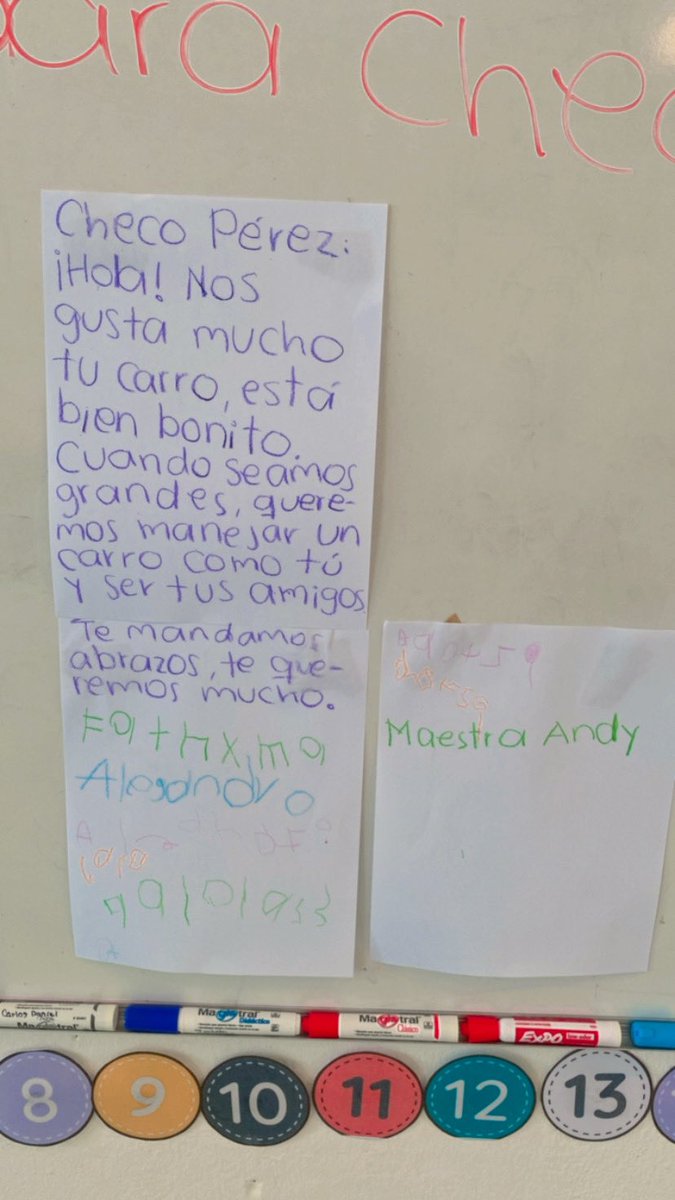 ara Chec
Checo Pérez:
¡Hola! Nos
gusta mucho
tu carro, está
bien bonito.
Cuando seamos
grandes, quere-
mos manejar un
carro como tú
y ser tus amigos
Te mandamos
abrazos, te que-
remos mucho.
Alejandro
Maestra Andy
Carlos Daniel
Magistral
Magistral
Didáctico
Magistral
Clásico
EXPO
8 9 10 11 12 13